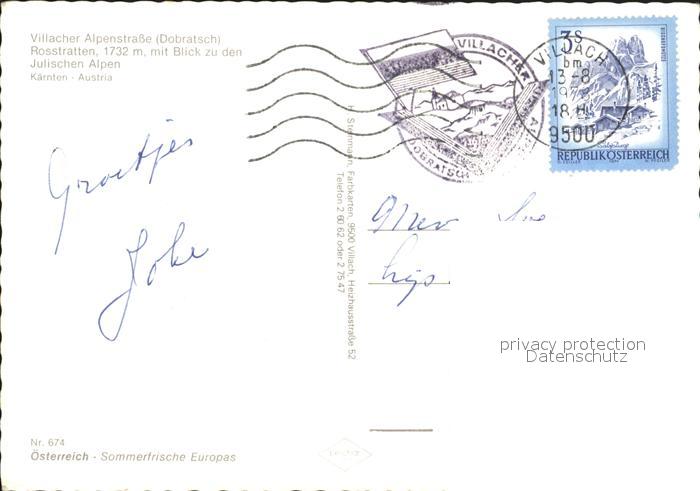 Villacher Alpenstraße (Dobratsch)
Rosstratten, 1732 m, mit Blick zu den
Julischen Alpen
Kärnten - Austria
Groetjes
Joke
H. Steinmann, Farbkarten, 9500 Villach, Heizhausstraße 52
Telefon 2 60 62 oder 2 75 47
VILLACHER
DOBRATSCH
VILLACH
bm
13-8
18
9500
3S
REPUBLIK ÖSTERREICH
Mev
privacy protection
Datenschutz
Nr. 674
Österreich - Sommerfrische Europas